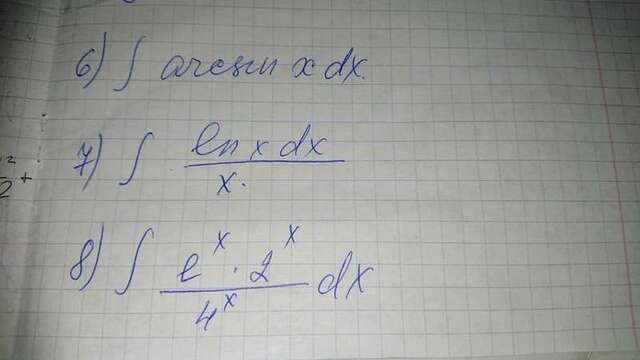 6) ∫ arcsin x dx.
7) ∫ ln x dx / x.
8) ∫ e^x · 2^x / 4^x dx
2 +